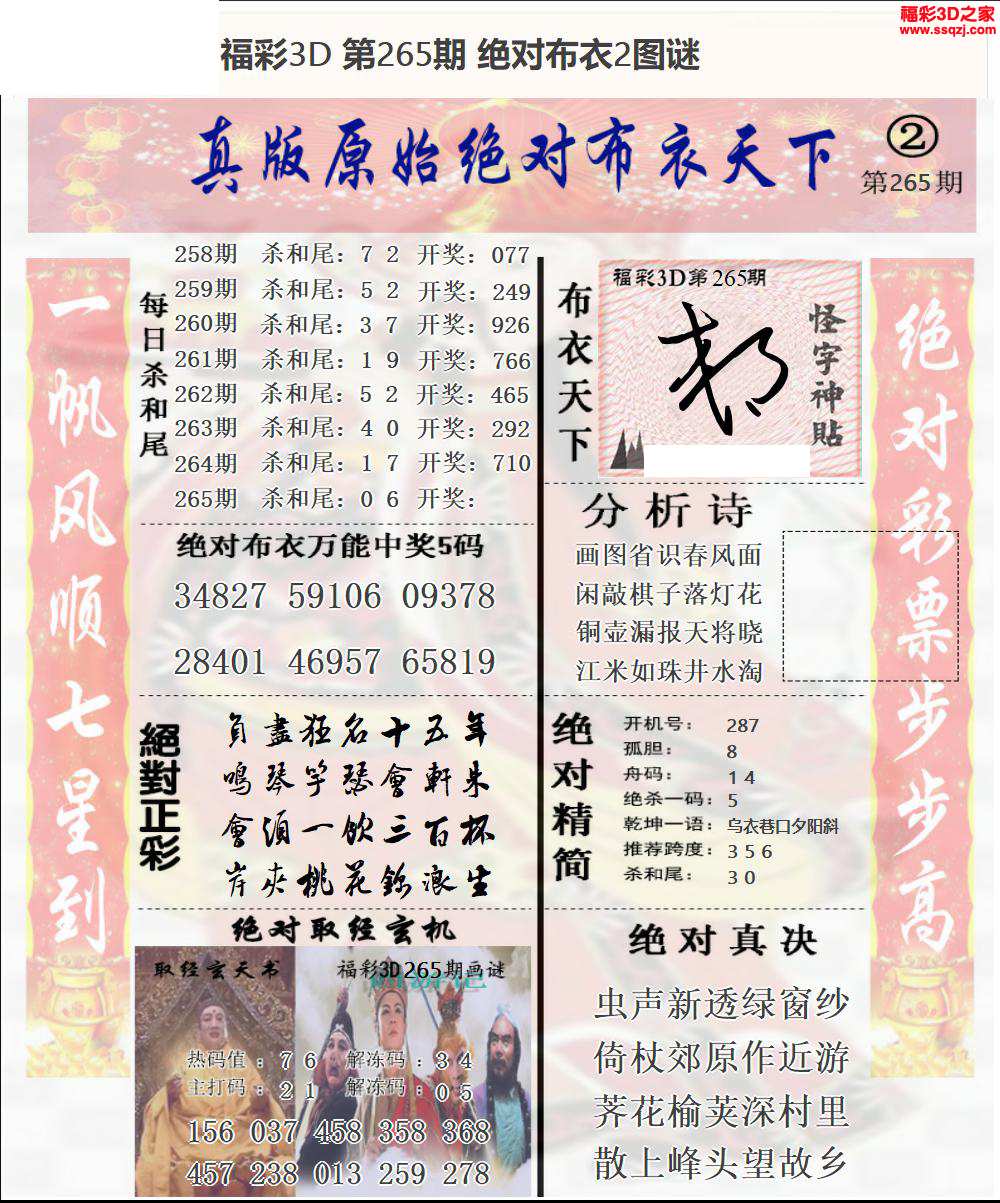 福彩3D之家
www.ssqzj.com
福彩3D 第265期 绝对布衣2图谜
真版原始绝对布衣天下
②
第265期
一帆风顺七星到
每日杀和尾
258期 杀和尾：7 2 开奖：077
259期 杀和尾：5 2 开奖：249
260期 杀和尾：3 7 开奖：926
261期 杀和尾：1 9 开奖：766
262期 杀和尾：5 2 开奖：465
263期 杀和尾：4 0 开奖：292
264期 杀和尾：1 7 开奖：710
265期 杀和尾：0 6 开奖：
绝对布衣万能中奖5码
34827 59106 09378
28401 46957 65819
絕對正彩
負盡狂名十五年
鳴琴竽瑟會軒朱
會須一飲三百杯
岸夾桃花錦浪生
绝对取经玄机
取经玄天书
福彩3D265期画谜
热码值：7 6 解冻码：3 4
主打码：2 1 解冻码：0 5
156 037 458 358 368
457 238 013 259 278
布衣天下
福彩3D第265期
怪字神貼
分析诗
画图省识春风面
闲敲棋子落灯花
铜壶漏报天将晓
江米如珠井水淘
绝对精简
开机号：287
孤胆：8
舟码：1 4
绝杀一码：5
乾坤一语：乌衣巷口夕阳斜
推荐跨度：3 5 6
杀和尾：3 0
绝对真决
虫声新透绿窗纱
倚杖郊原作近游
荠花榆荚深村里
散上峰头望故乡
绝对彩票步步高